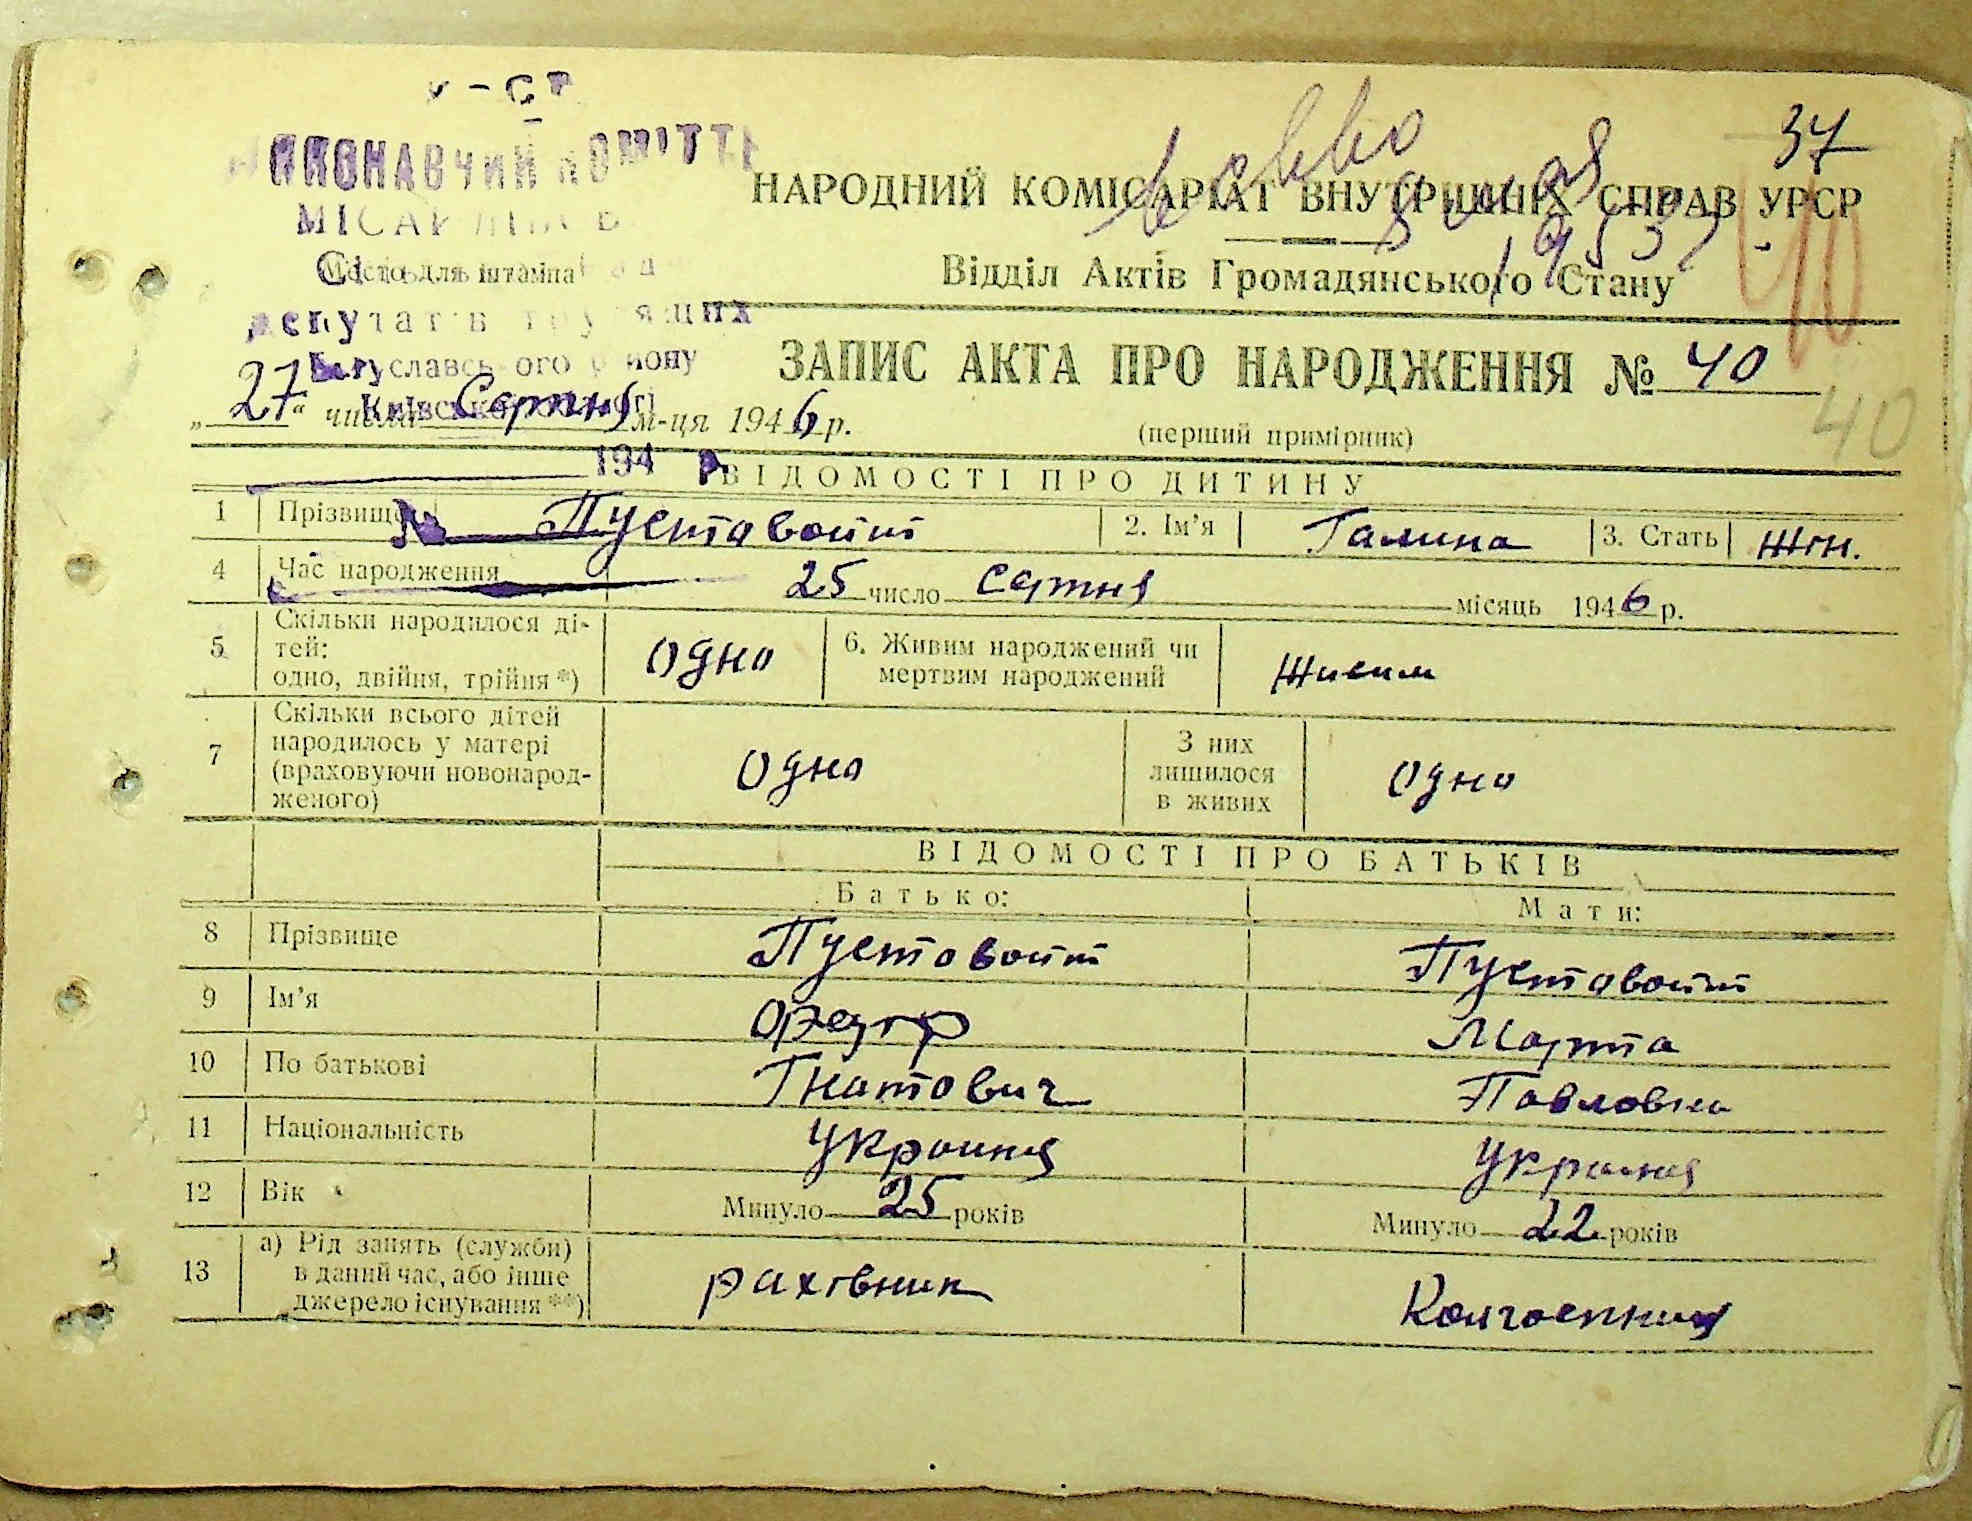 37
ВИКОНАВЧИЙ КОМІТЕТ
НАРОДНИЙ КОМІСАРІАТ ВНУТРІШНІХ СПРАВ УРСР
40
Місце для штампа
Відділ Актів Громадянського Стану
1953
депутатів трудящих
Богуславського району
Київської області
ЗАПИС АКТА ПРО НАРОДЖЕННЯ № 40
40
„27“ числа Серпня м-ця 1946 р.
(перший примірник)
194 р.
ВІДОМОСТІ ПРО ДИТИНУ
1 Прізвище № Пустовойт 2. Ім'я Галина 3. Стать жін.
4 Час народження 25 число серпня місяць 1946 р.
5 Скільки народилося ді-
тей:
одно, двійня, трійня *)
одно
6. Живим народжений чи
мертвим народжений
живим
7 Скільки всього дітей
народилось у матері
(враховуючи новонарод-
женого)
одно
З них
лишилося
в живих
одно
ВІДОМОСТІ ПРО БАТЬКІВ
Батько: Мати:
8 Прізвище Пустовойт Пустовойт
9 Ім'я Федір Марта
10 По батькові Гнатович Павловна
11 Національність
12 Вік Минуло 25 років Минуло 22 років
13 а) Рід занять (служби)
в даний час, або інше
джерело існування **)
рахівник Колгоспниця